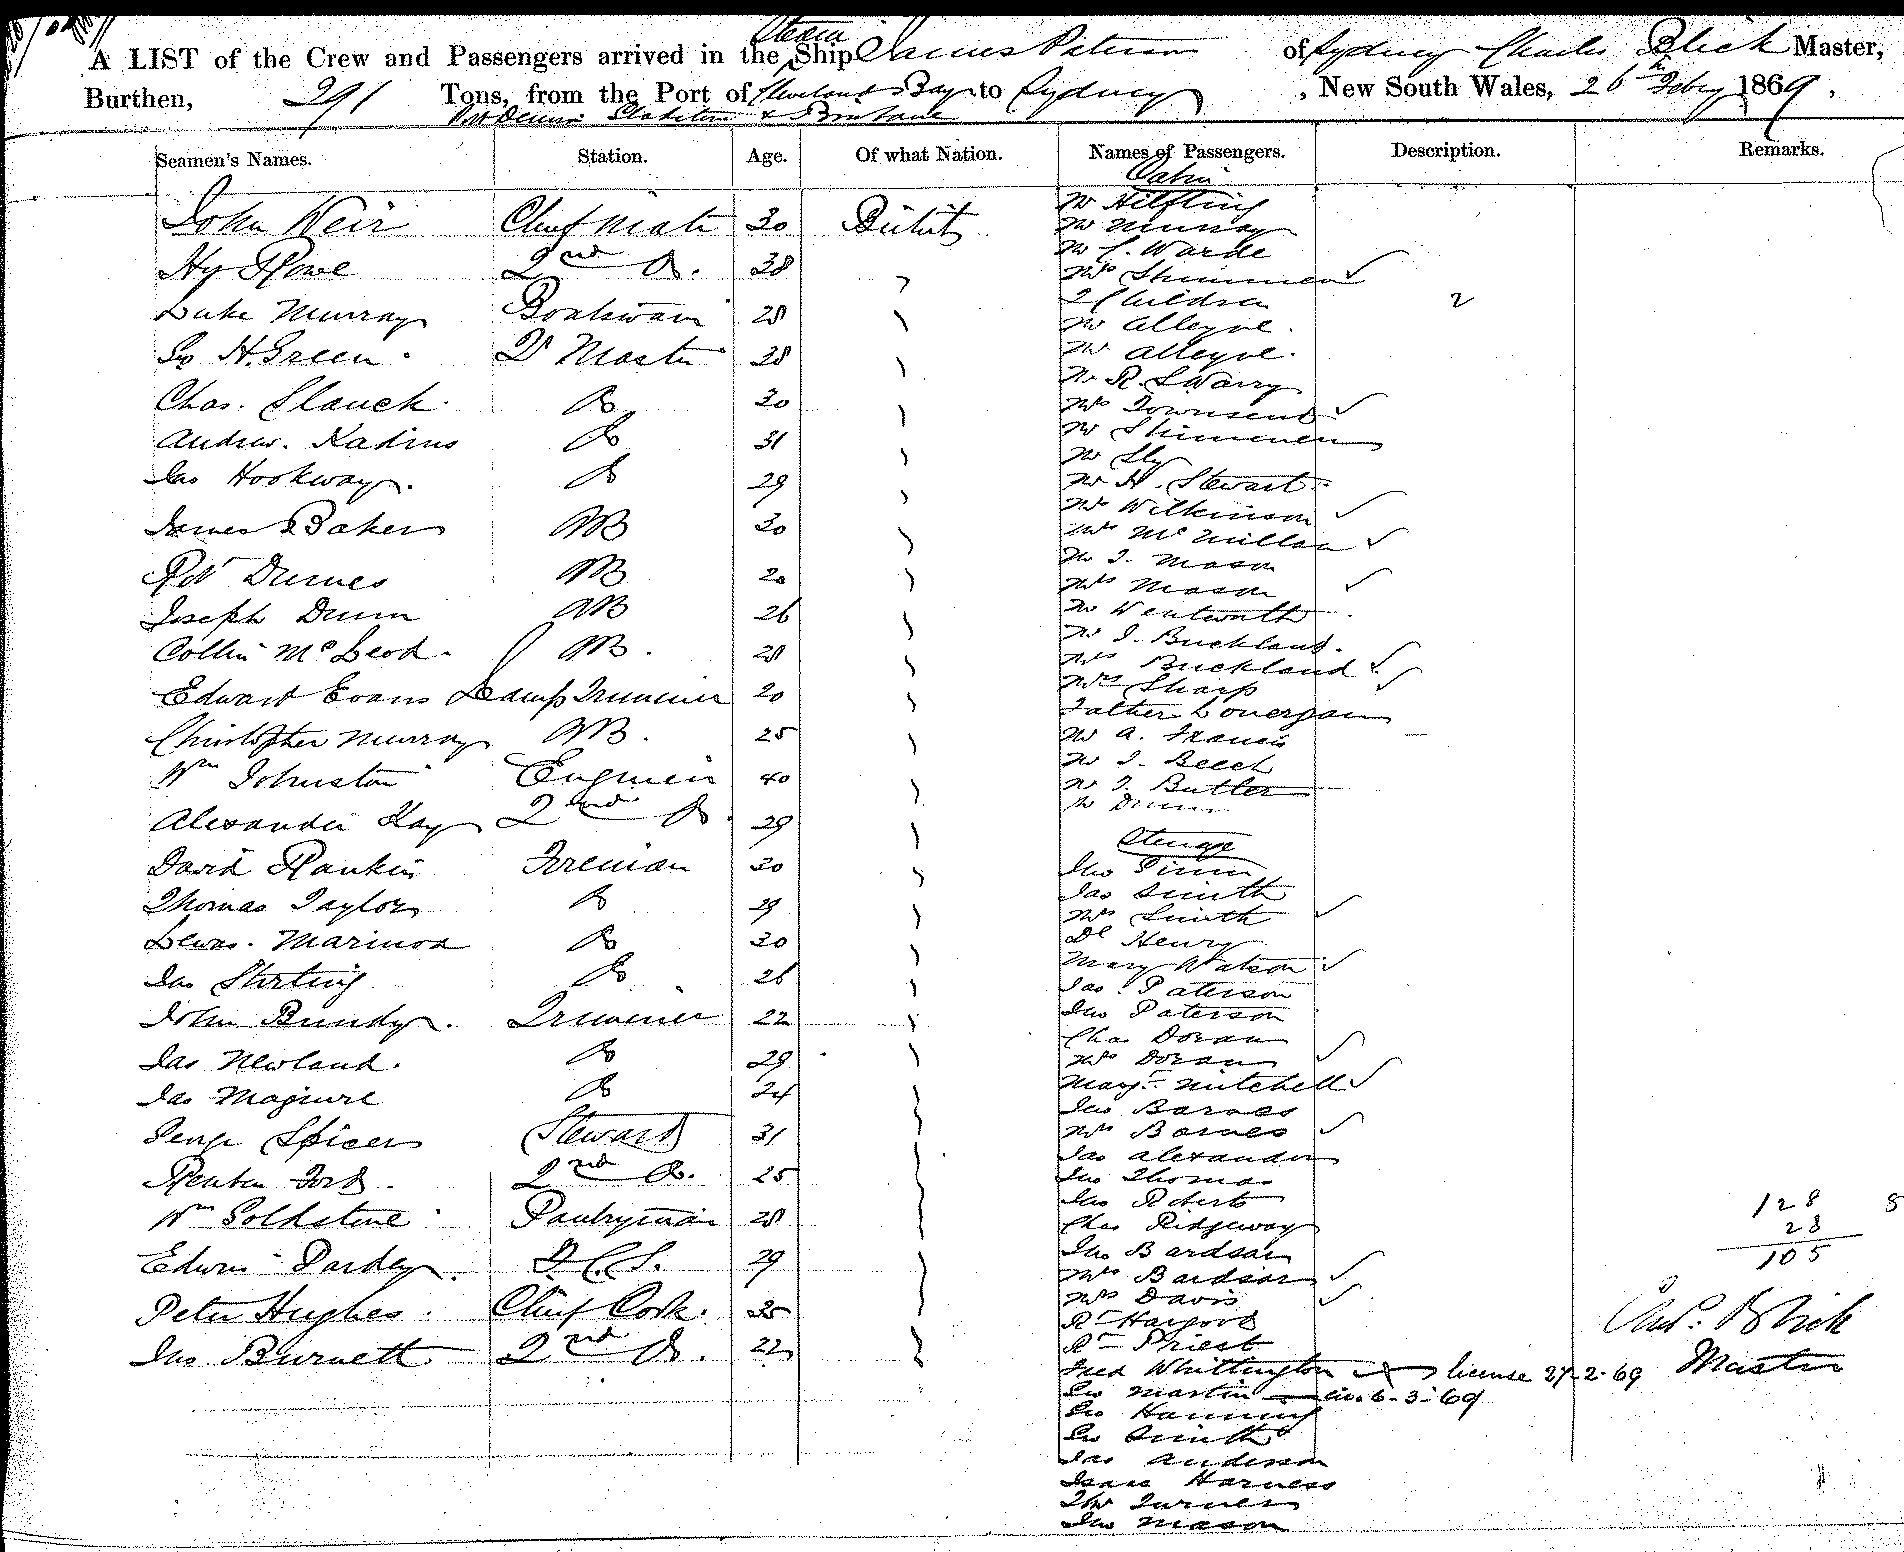 A LIST of the Crew and Passengers arrived in the Steam Ship James Paterson of Sydney Charles Blick Master,
Burthen, 291 Tons, from the Port of Cleveland Bay to Sydney, New South Wales, 26th Feby 1869.
Port Denison Gladstone & Brisbane
Seamen's Names. Station. Age. Of what Nation. Names of Passengers. Description. Remarks.
John Weir Chief Mate 30 British
Hy Rowe 2nd Do. 38
Luke Murray Boatswain 28
Geo H. Green Qr Master 38
Chas. Slauck Do 30
Andrew. Do 31
Jas Hookway. Do 29
James Baker AB 30
Robt AB 20
Joseph Dunn AB 26
Collin McLeod. AB. 28
Edward Evans Lamp Trimmer 20
Christopher Murray AB. 25
Wm Johnston Engineer 40
Alexander Kay 2nd Do 29
David Rankin Fireman 30
Thomas Taylor Do 29
Lewis. Do 30
Jas Stirling Do 26
John Bundy. Trimmer 22
Jas Newland. Do 29
Jas Maguire Do 24
George Spicer Steward 31
Reuben Ford. 2nd Do. 25
Wm Goldstine Pantryman 28
Edwin Pardey. F.C.S. 29
Peter Hughes. Chief Cook. 35
Jno Burnett 2nd Do. 22
Cabin
Mr Hilfling
Mr Murray
Mr C. Warde
Mrs Shimmen
2 Children 2
Mr Alleyne.
Mrs Alleyne.
Mr R. L Warry
Mrs Townsend
Mr Shimmen
Mr Sly
Mr H. Stewart.
Mrs Wilkinson
Mrs McMillan
Mr J. Mason
Mrs Mason
Mr Wentworth
Mr J. Buckland.
Mrs Buckland
Mrs Sharp
Father Lonergan
Mr A. Francis
Mr J. Beech
Mr J. Butler
Mr Dunn
Steerage
Jno
Jas Smith
Mrs Smith
Dl Henry
Mary Watson
Jas. Paterson
Jno Paterson
Chas Doran
Mrs Doran
Margt Mitchell
Jno Barnes
Mrs Barnes
Jas Alexander
Jno Thomas
Jno Roberts
Chas Ridgeway
Jno Bardsan
Mrs Bardsan
Mrs Davis
Rd
Rd Priest
Fred Whittington license 27-2-69
Geo Martin lic. 6-3-69
Geo Hanning
Geo Smith
Jas Anderson
Isaac Harness
Thos Turner
Jno Mason
128 8
23
105
Chas. Blick
Master